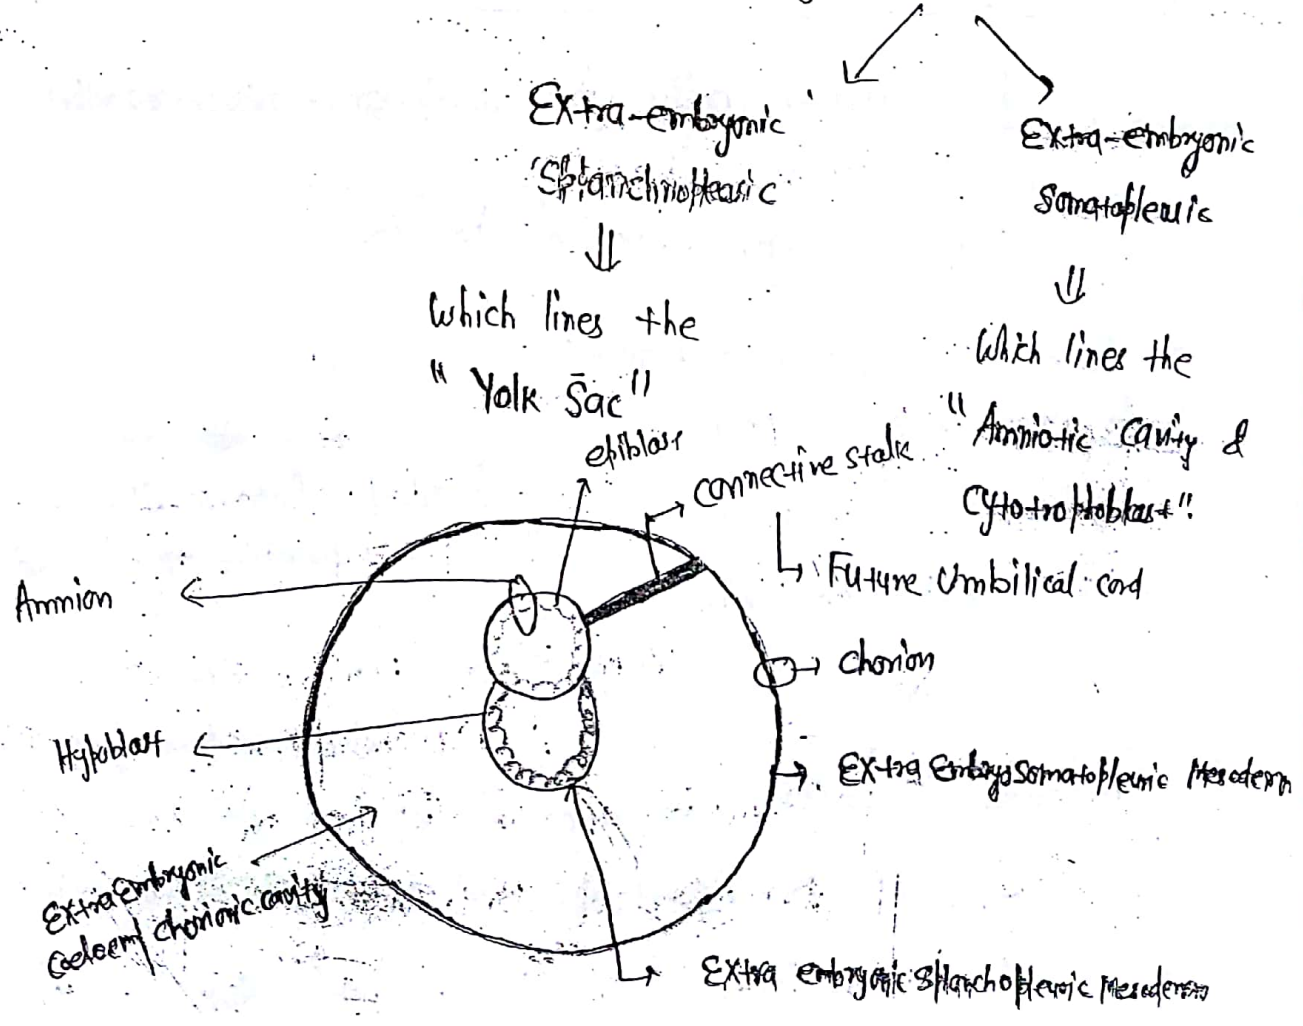 Extra-embryonic
Splanchnopleuric
which lines the
"Yolk Sac"
Extra-embryonic
Somatopleuric
Which lines the
"Amniotic Cavity &
Cytotrophoblast".
epiblast
connective stalk
Future Umbilical cord
Amnion
chorion
Hypoblast
Extra Embryo Somatopleuric Mesoderm
Extra Embryonic
Coeloem/ chorionic cavity
Extra embryonic Splanchopleuric Mesoderm